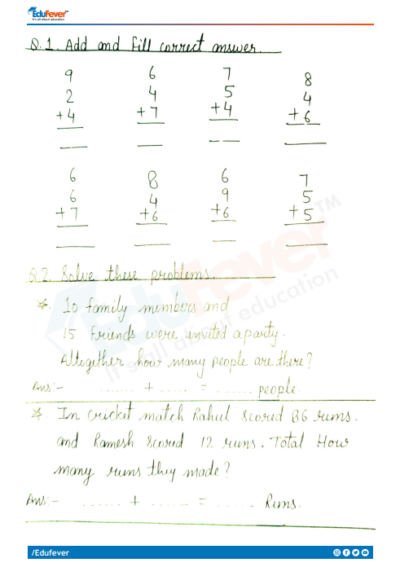 EduFever
Q.1. Add and fill correct answer.
9 6 7 8
2 4 5 4
+4 +7 +4 +6
6 8 6 7
6 4 9 5
+7 +6 +6 +5
Q.2. Solve these problems.
*. 10 family members and
15 Friends were invited a party.
Altogether how many people are there?
Ans:- ...... + ...... = ...... people.
* In cricket match Rahul Scored 36 runs.
and Ramesh Scored 12 runs. Total How
many runs they made?
Ans:- ...... + ...... = ...... Runs.
/Edufever